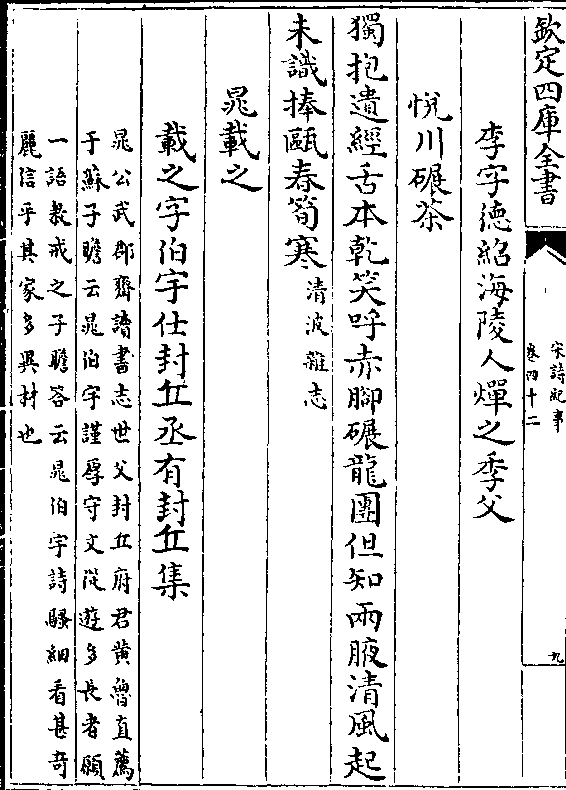 欽定四庫全書
宋詩紀事
卷四十二
九
李字德紹海陵人燀之季父
悅川碾茶
獨抱遺經舌本乾笑呼赤腳碾龍團但知兩腋清風起
未識捧甌春筍寒清波雜志
晁載之
載之字伯宇仕封丘丞有封丘集
晁公武郡齋讀書志世父封丘府君黃魯直薦
子蘇子瞻云晁伯宇謹厚守文從遊多長者願
一語教戒之子瞻答云晁伯宇詩騷細看甚奇
麗信乎其家多異材也